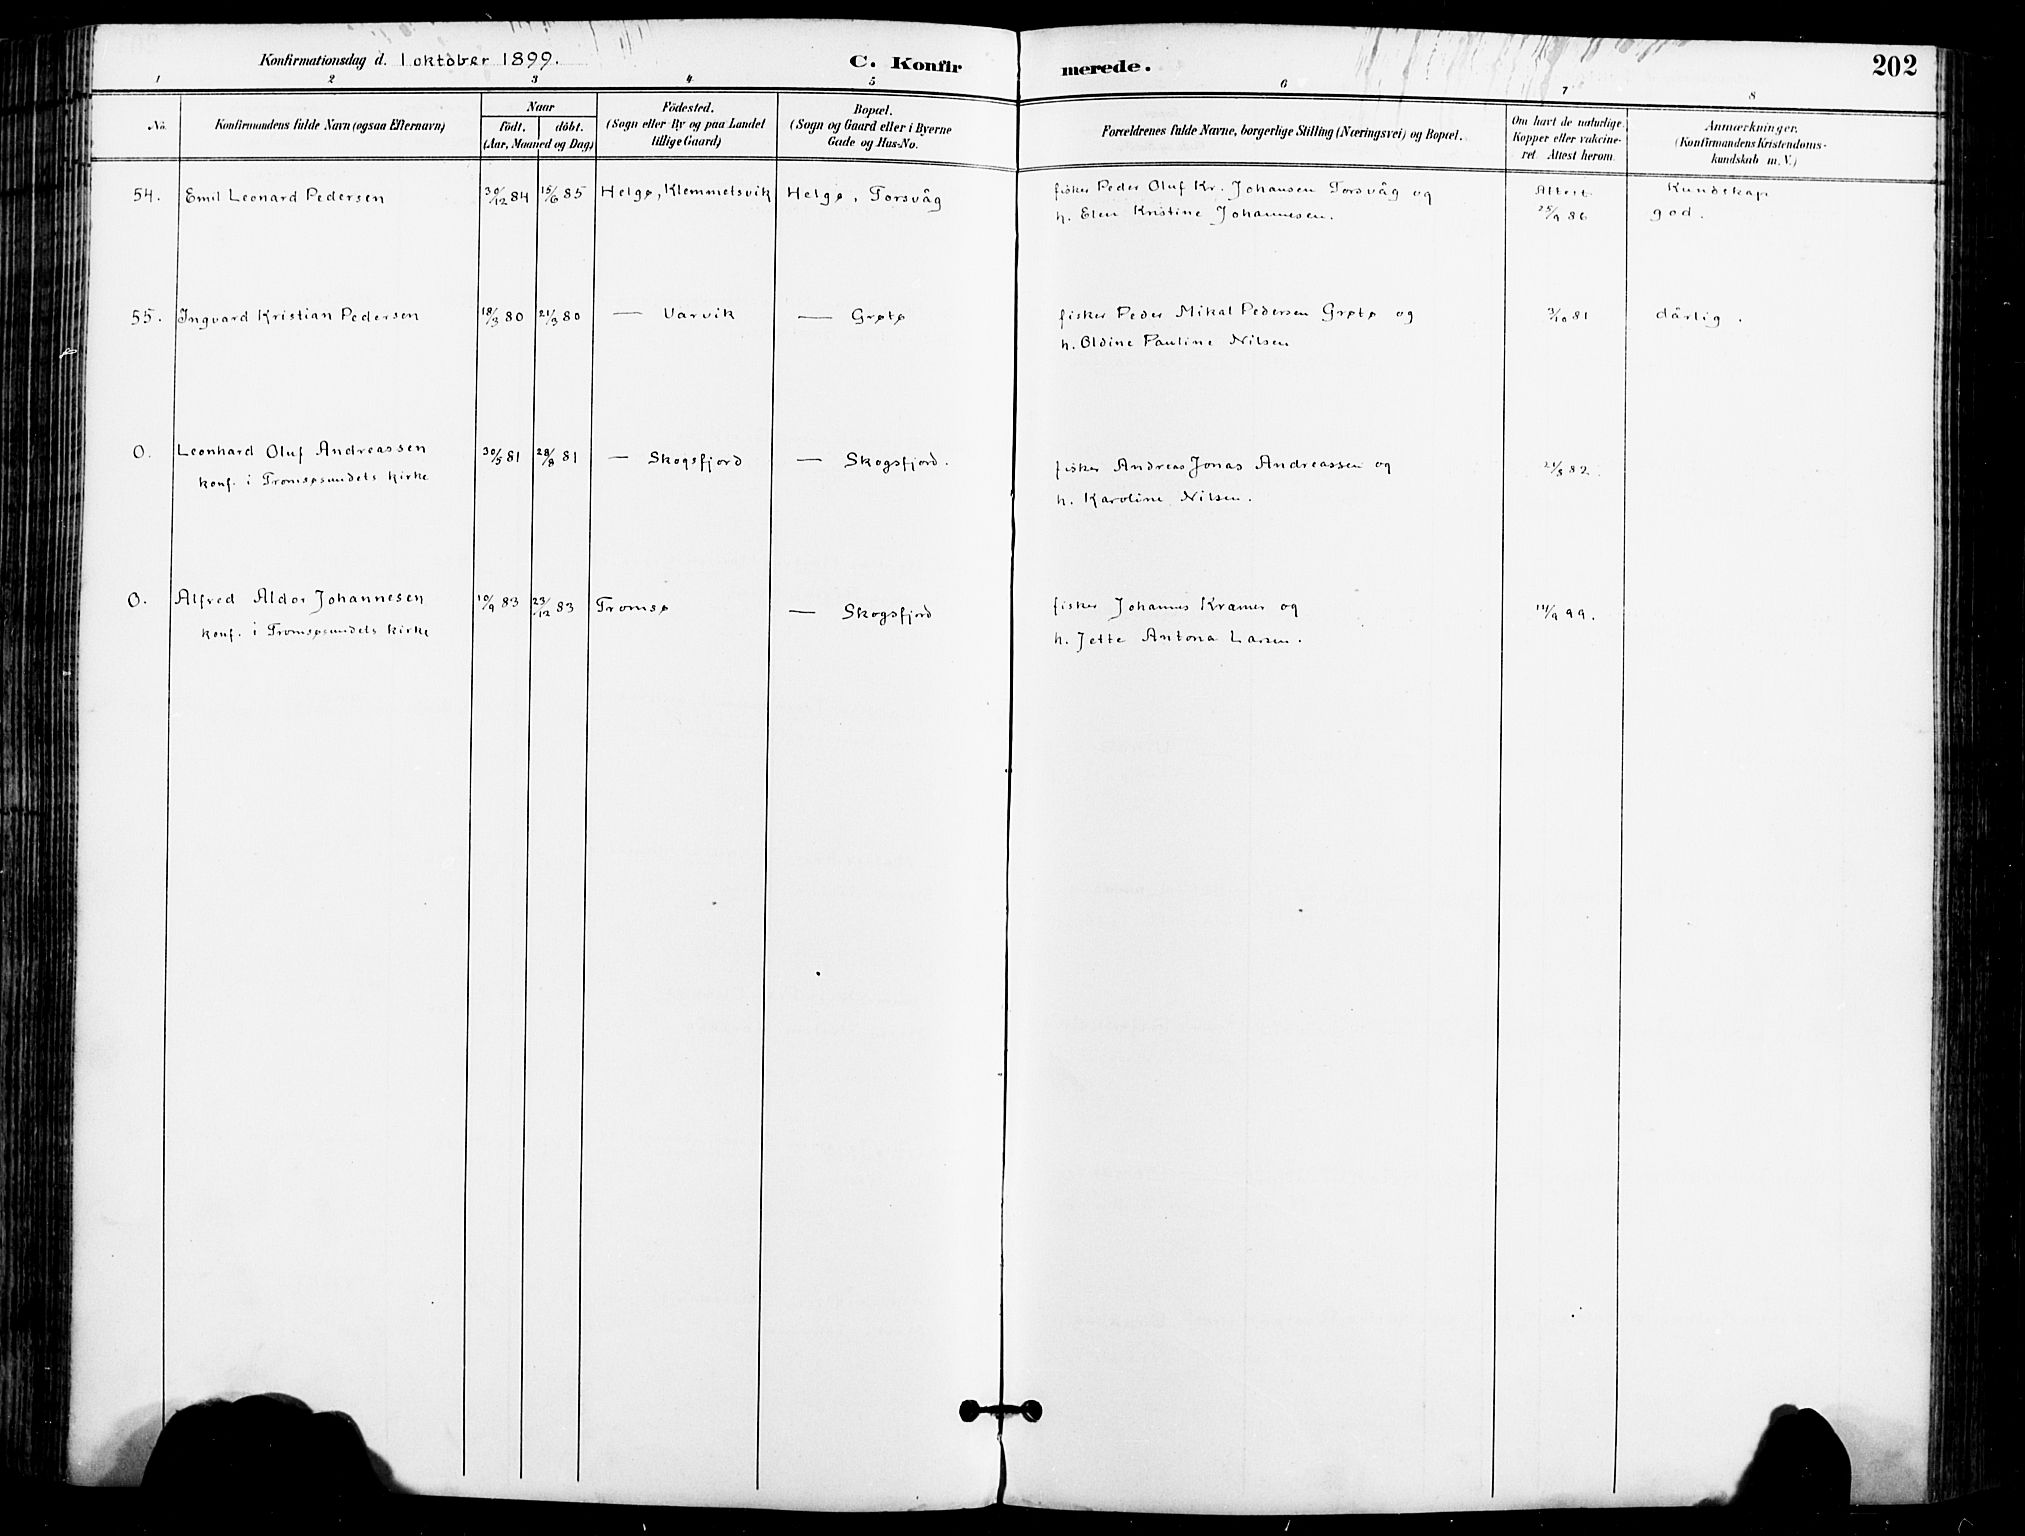 Konfirmationsdag d. 1 oktober 1899.
C. Konfirmerede.
202
1 2 3 4 5 6 7 8
No.
Konfirmandens fulde Navn (ogsaa Efternavn)
Naar
født. døbt.
(Aar, Maaned og Dag)
Födested.
(Sogn eller By og paa Landet
tillige Gaard)
Bopæl.
(Sogn og Gaard eller i Byerne
Gade og Hus-No.
Forældrenes fulde Navne, borgerlige Stilling (Næringsvei) og Bopæl.
Om havt de naturlige
Kopper eller vakcine-
ret. Attest herom.
Anmærkninger.
(Konfirmandens Kristendoms-
kundskab m. V.)
54. Emil Leonard Pedersen 30/12 84 15/6 85 Helgø, Klemmetsvik Helgø, Torsvåg fisker Peder Oluf Kr. Johansen Torsvåg og Attest Kundskap
h. Elen Kristine Johannesen. 25/9 86 god.
55. Ingvard Kristian Pedersen 18/3 80 21/3 80 — Varvik — Grøtø fisker Peder Mikal Pedersen Grøtø og 3/10 81 dårlig.
h. Oldine Pauline Nilsen
0. Leonhard Oluf Andreassen 30/5 81 28/8 81 — Skogsfjord — Skogsfjord. fisker Andreas Jonas Andreassen og 21/8 82.
konf. i Tromsøsundets kirke h. Karoline Nilsen.
0. Alfred Aldor Johannesen 10/9 83 23/12 83 Tromsø — Skogsfjord fisker Johannes Kramer og 11/9 99.
konf. i Tromsøsundets kirke h. Jette Antona Larsen.